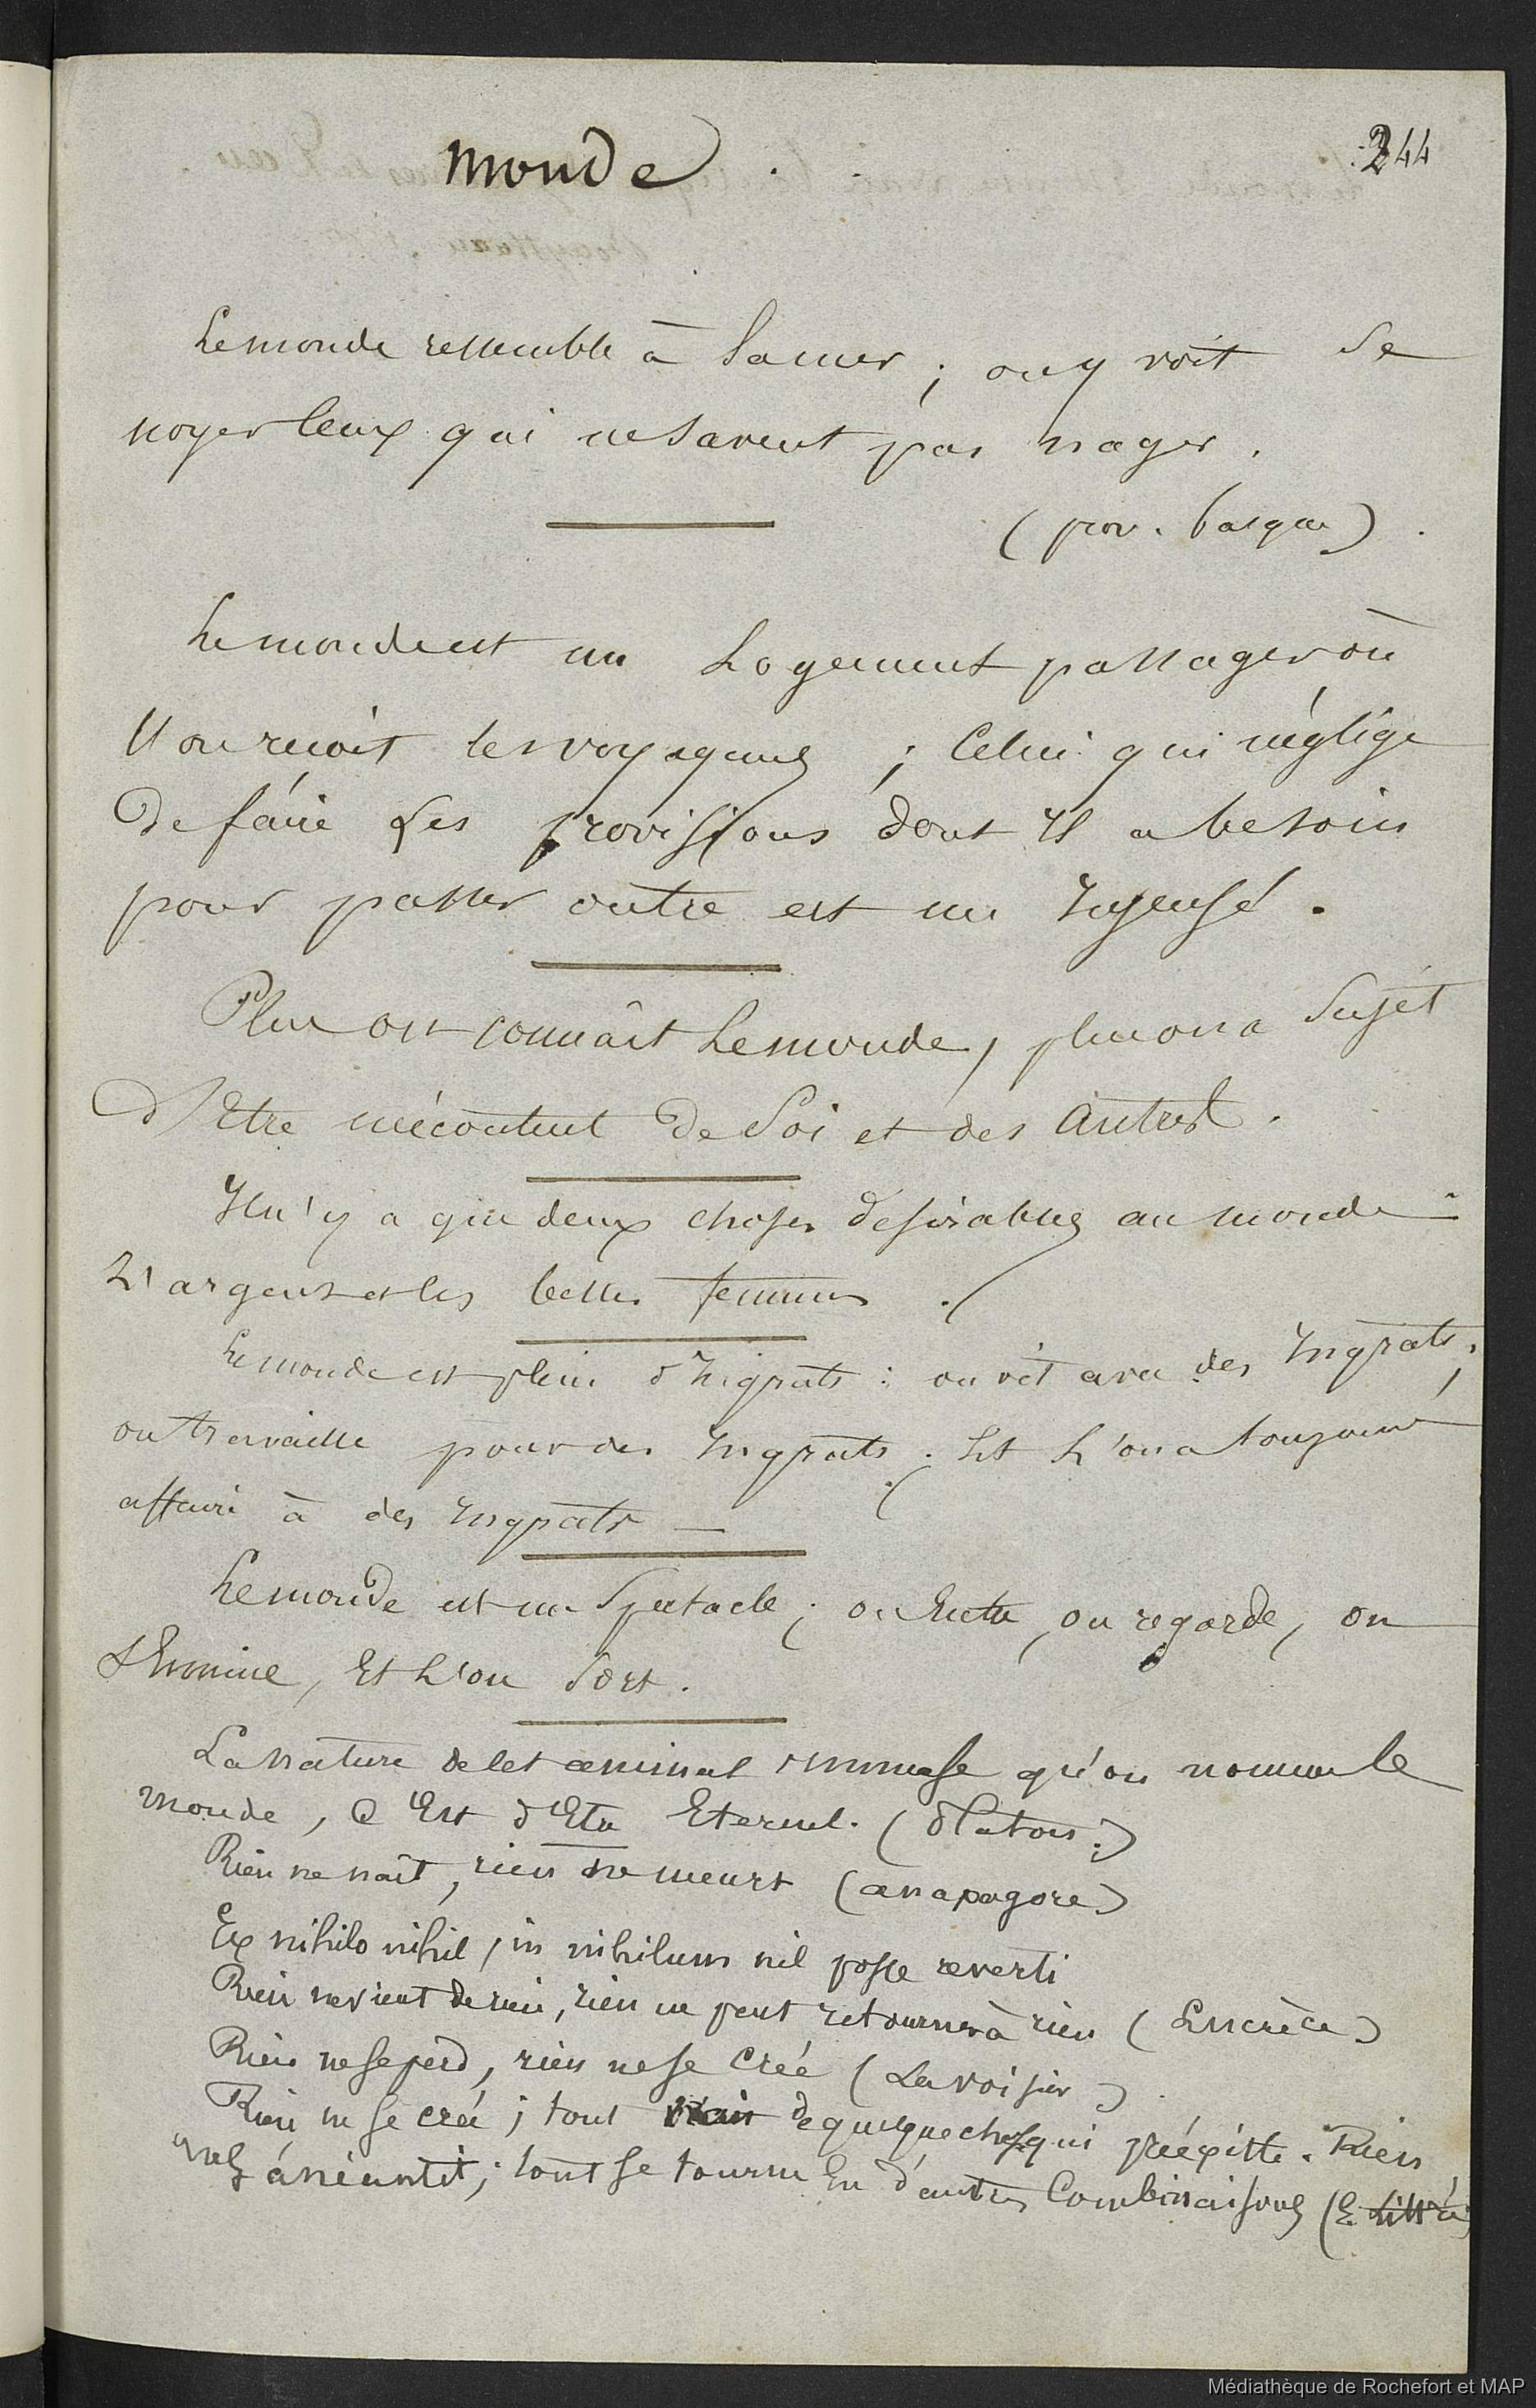 monde .
244
Le monde ressemble à la mer ; on y voit se
noyer ceux qui ne savent pas nager .
( prov. basque ) .
Le monde est un Logement passager où
l'on reçoit les voyageurs ; Celui qui néglige
De faire Les provisions dont Il a besoin
pour passer outre est un Insensé .
Plus on connaît Le monde , plus on a Sujet
D'Etre mécontent De Soi et des Autres .
Il n'y a que deux choses desirables au monde :
L'argent et les belles femmes .
Le monde est plein d'Ingrats : on vit avec des Ingrats ;
on travaille pour des Ingrats ; Et L'on a toujours
affaire à des Ingrats —
Le monde est un Spectacle ; on Entre , on regarde , on
, Et L'on Sort .
La nature de cet animal immense qu'on nomme le
monde , C'Est d'Etre Eternel . ( Platon . )
Rien ne naît , rien ne meurt ( anaxagore )
Ex nihilo nihil , in nihilum nil posse reverti
Rien ne vient de rien , rien ne peut retourner à rien ( Lucrèce )
Rien ne se perd , rien ne se Crée ( Lavoisier ) .
Rien ne se crée ; tout vient de quelque chose qui préexiste . Rien
ne s'anéantit ; tout se tourne En d'autres Combinaisons ( E. Littré )
Médiathèque de Rochefort et MAP